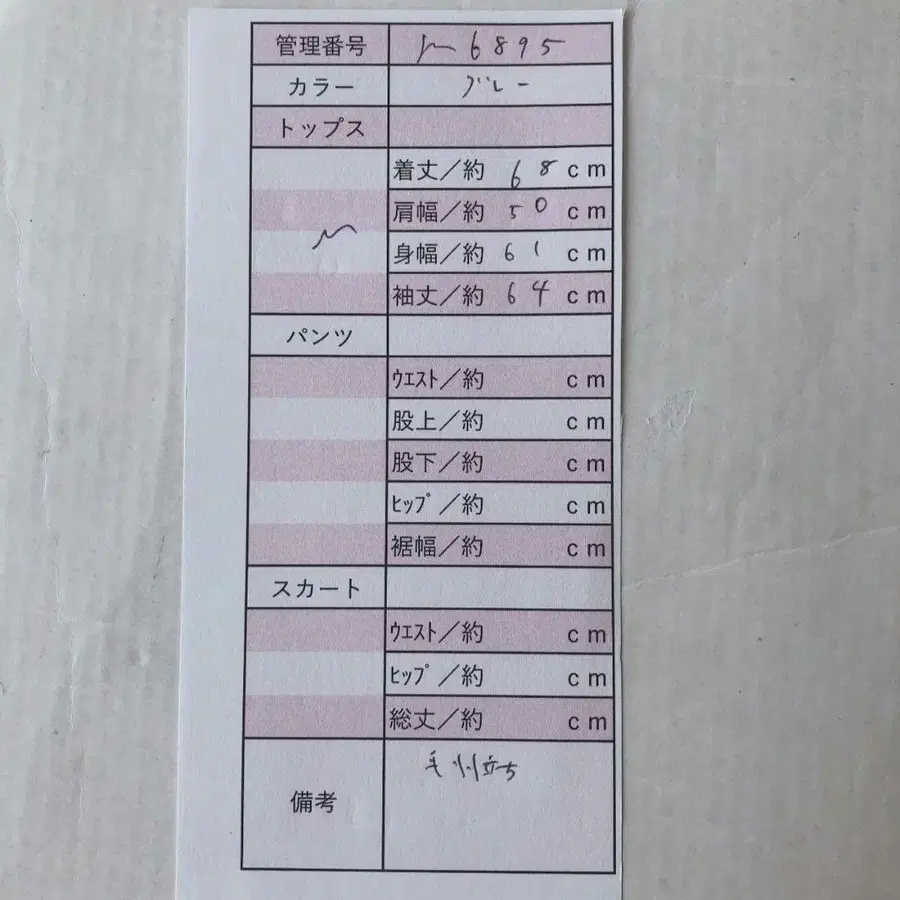 管理番号 m6895
カラー グレー
トップス
着丈／約 68 cm
肩幅／約 50 cm
M
身幅／約 61 cm
袖丈／約 64 cm
パンツ
ｳｴｽﾄ／約 cm
股上／約 cm
股下／約 cm
ﾋｯﾌﾟ／約 cm
裾幅／約 cm
スカート
ｳｴｽﾄ／約 cm
ﾋｯﾌﾟ／約 cm
総丈／約 cm
備考 毛羽立ち